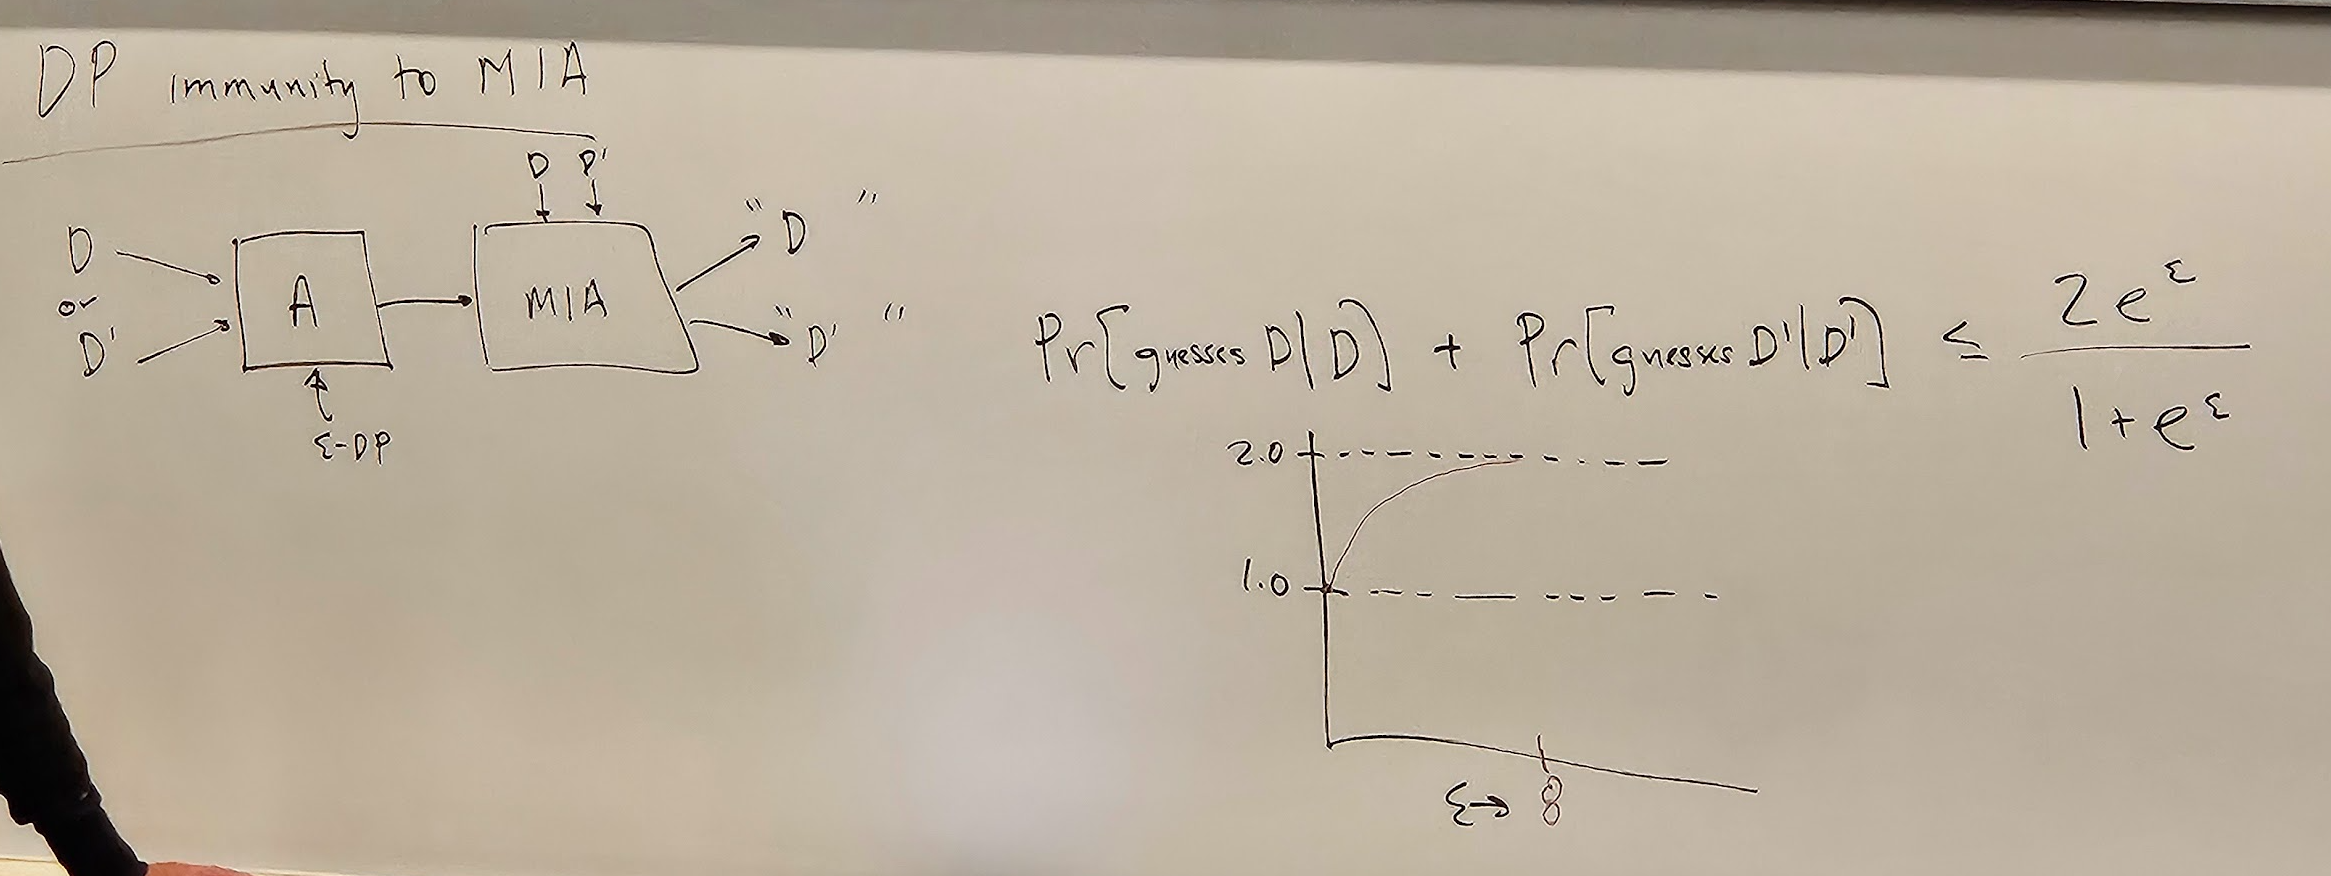 DP immunity to MIA
D D'
D
or
D'
A
MIA
"D "
"D' "
ε-DP
Pr[guesses D|D] + Pr[guesses D'|D'] ≤ 2e^ε
1+e^ε
2.0
1.0
ε→ 8